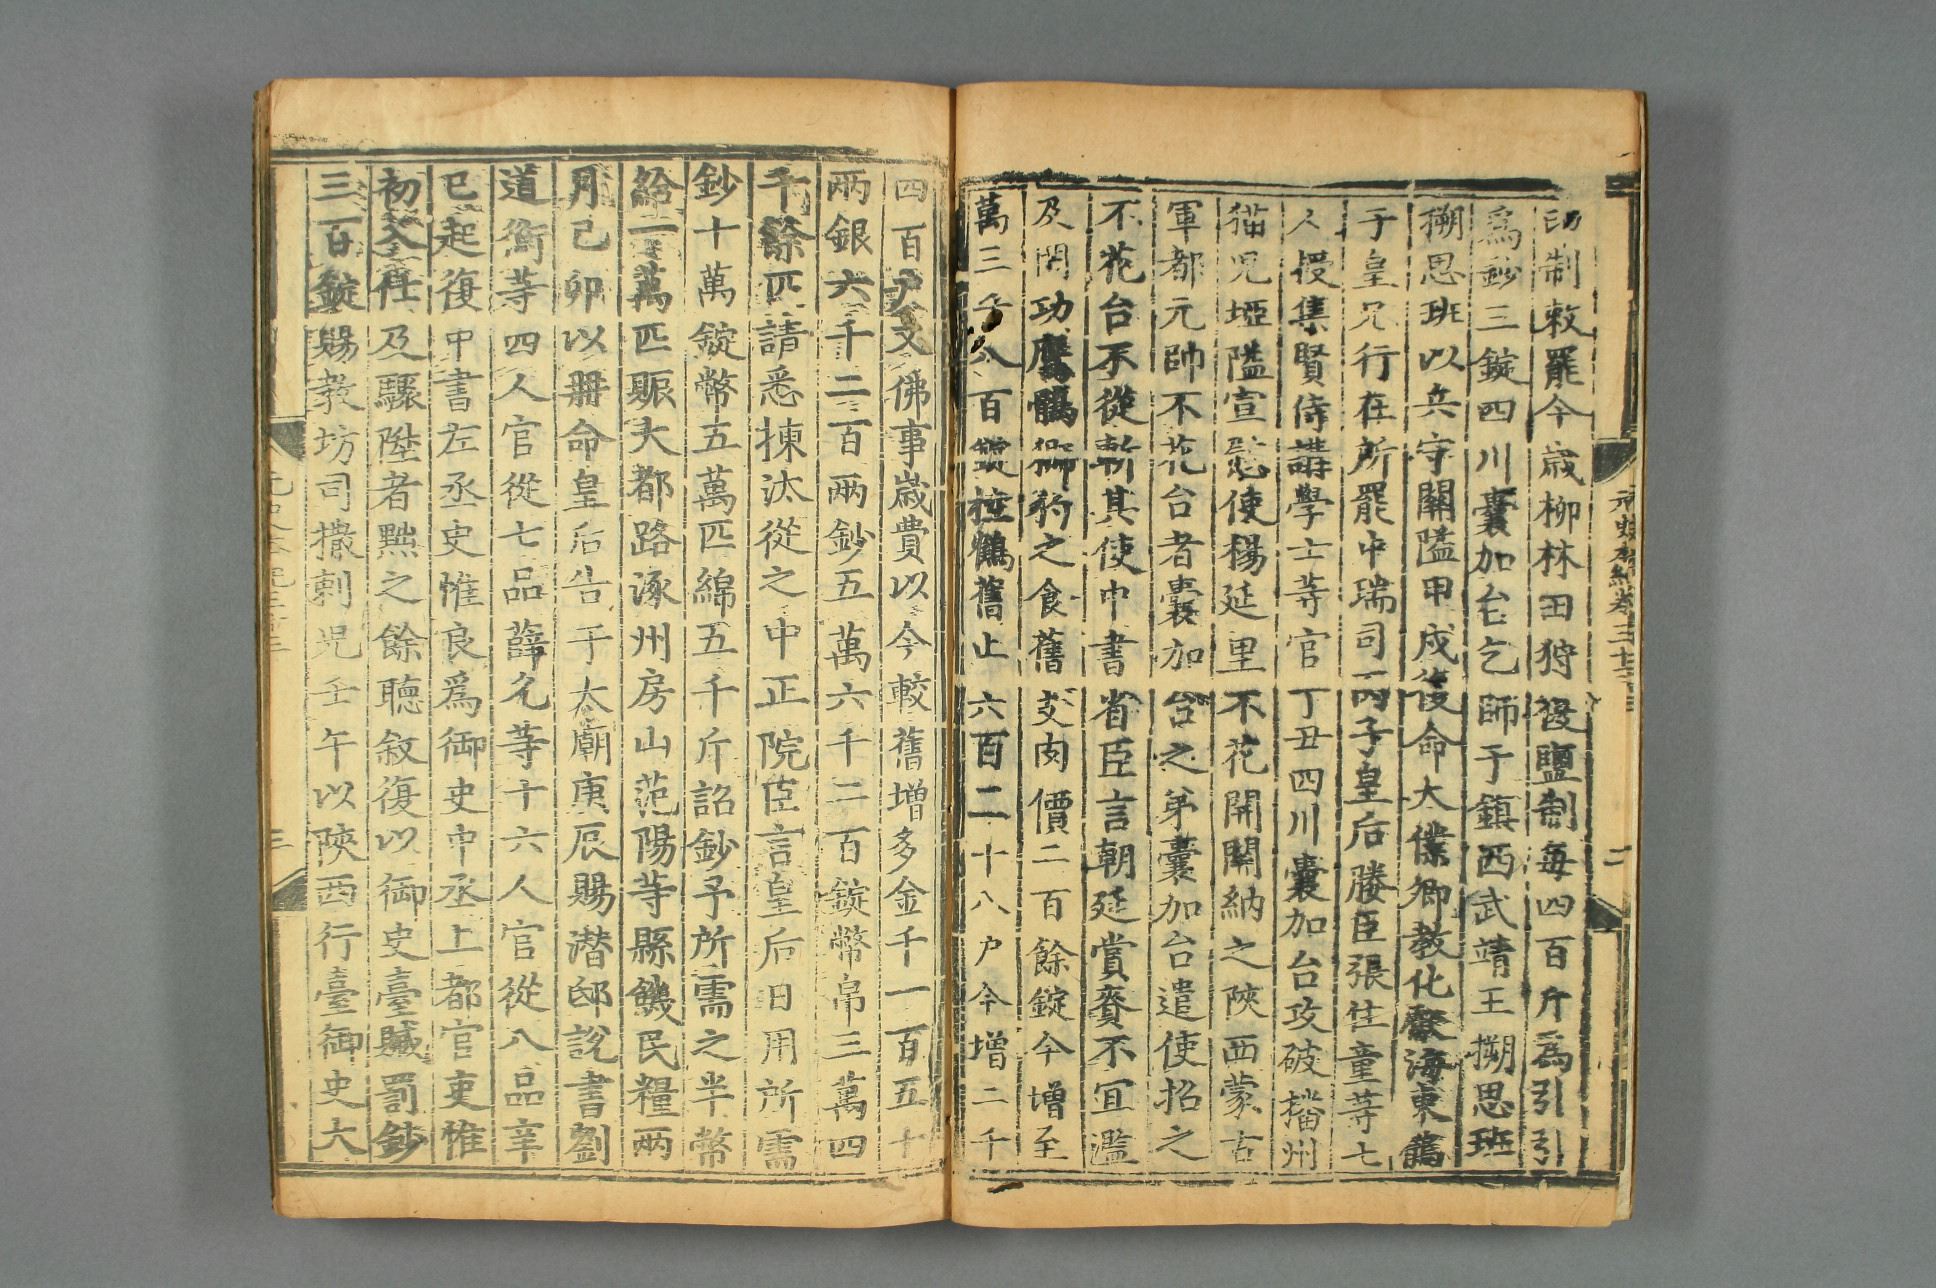 元史本紀卷三十三
二
印制敕罷今歲柳林田狩復鹽制每四百斤爲引引
爲鈔三錠四川囊加台乞師于鎮西武靖王搠思班
搠思班以兵守關隘甲戌復命太僕卿教化獻海東鶻
于皇兄行在所罷中瑞司丙子皇后媵臣張住童等七
人授集賢侍講學士等官丁丑四川囊加台攻破播州
猫兒埡隘宣慰使楊延里不花開關納之陝西蒙古
軍都元帥不花台者囊加台之弟囊加台遣使招之
不花台不從斬其使中書省臣言朝廷賞賚不宜濫
及罔功鷹鶻獅豹之食舊支肉價二百餘錠今增至
萬三千八百錠控鶴舊止六百二十八户今增二千
四百户又佛事歲費以今較舊增多金千一百五十
兩銀六千二百兩鈔五萬六千二百錠幣帛三萬四
千餘匹請悉揀汰從之中正院臣言皇后日用所需
鈔十萬錠幣五萬匹綿五千斤詔鈔予所需之半幣
給一萬匹賑大都路涿州房山范陽等縣饑民糧兩
月己卯以册命皇后告于太廟庚辰賜潛邸說書劉
道衡等四人官從七品薛允等十六人官從八品辛
巳起復中書左丞史惟良爲御史中丞上都官吏惟
初入仕及驟陞者黜之餘聽敘復以御史臺贓罰鈔
三百錠賜教坊司撒剌兒壬午以陝西行臺御史大
三